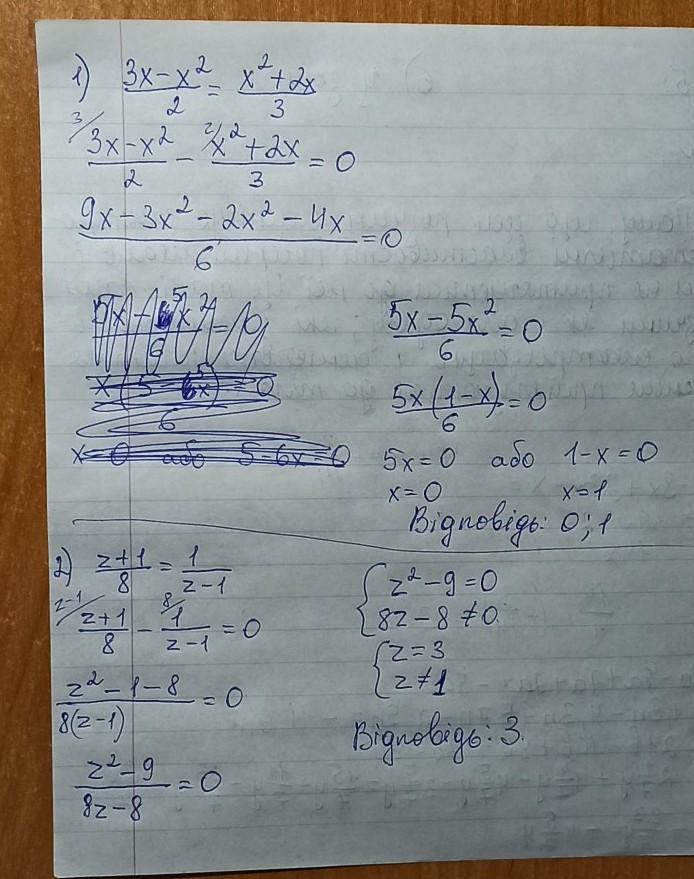 1) (3x-x²)/2 = (x²+2x)/3
3/ (3x-x²)/2 - 2/ (x²+2x)/3 = 0
(9x-3x²-2x²-4x)/6 = 0
(5x-5x²)/6 = 0
5x(1-x)/6 = 0
5x=0 або 1-x=0
x=0 x=1
Відповідь: 0; 1
2) (z+1)/8 = 1/(z-1)
z-1/ (z+1)/8 - 8/ 1/(z-1) = 0
(z²-1-8)/(8(z-1)) = 0
(z²-9)/(8z-8) = 0
{ z²-9=0
8z-8≠0
{ z=3
z≠1
Відповідь: 3.